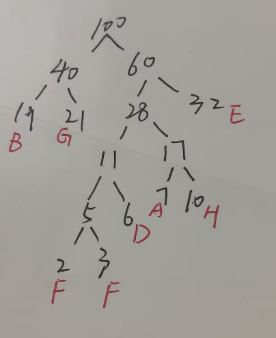 100
40 60
19 21 28 32 E
B G
11 17
5 6 7 10
D A H
2 3
F F